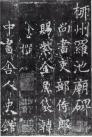 柳州羅池廟碑
尚書吏部侍郎
賜紫金魚袋
中書舍人史館